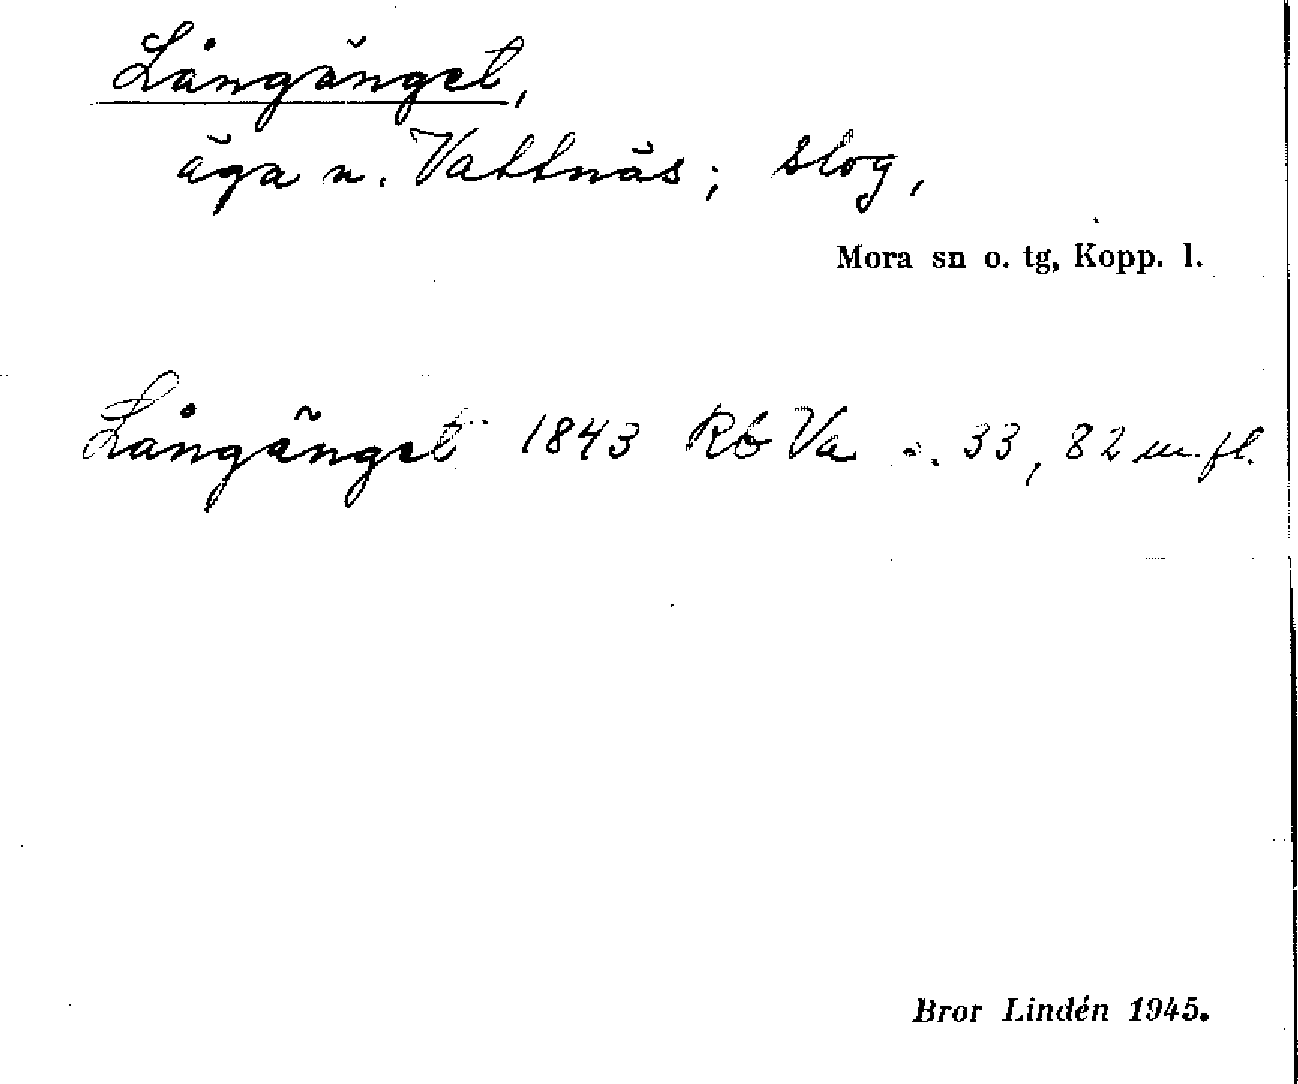 Långänget,
äga n. Vattnäs; slog,
Mora sn o. tg, Kopp. l.
Långänget 1843 Rb Va s. 33, 82 m.fl.
Bror Lindén 1945.